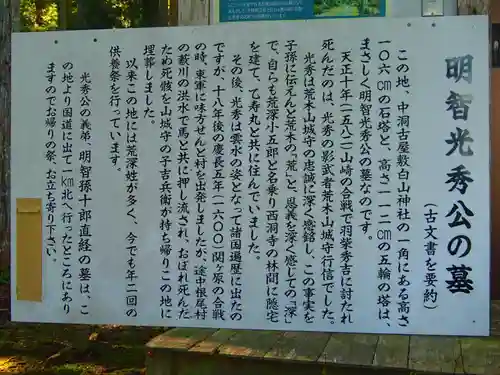 明智光秀公の墓
（古文書を要約）
この地、中洞古屋敷白山神社の一角にある高さ
一〇六cmの石塔と、高さ一一二cmの五輪の塔は、
まさしく明智光秀公の墓なのです。
天正十年（一五八二）山崎の合戦で羽柴秀吉に討たれ
死んだのは、光秀の影武者荒木山城守行信でした。
光秀は荒木山城守の忠誠に深く感銘し、この事実を
子孫に伝えんと荒木の「荒」と、恩義を深く感じての「深」
で、自らも荒深小五郎と名乗り西洞寺の林間に隠宅
を建て、乙寿丸と共に住んでいました。
その後、光秀は雲水の姿となって諸国遍歴に出たの
ですが、十八年後の慶長五年（一六〇〇）関ヶ原の合戦
の時、東軍に味方せんと村を出発しましたが、途中根尾村
の藪川の洪水で馬と共に押し流され、おぼれ死んだ
ため死骸を山城守の子吉兵衛が持ち帰りこの地に
埋葬しました。
以来この地には荒深姓が多く、今でも年二回の
供養祭を行っています。
光秀公の義弟、明智孫十郎直経の墓は、こ
の地より国道に出て一km北へ行ったところにあり
ますのでお帰りの祭、お立ち寄り下さい。